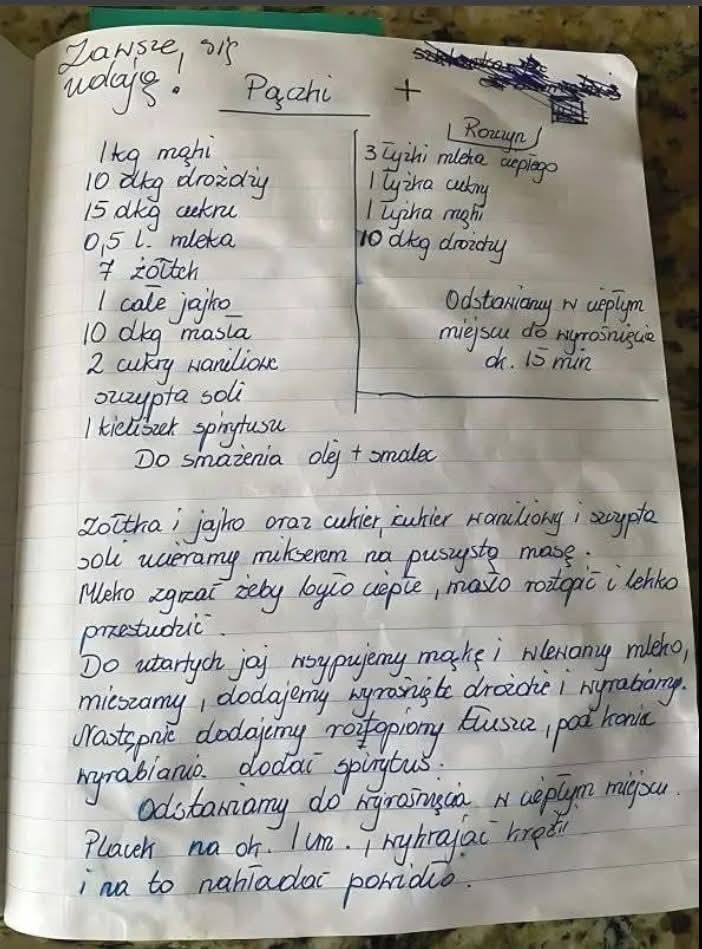 Zawsze się
udają!
Pączki +
1 kg mąki
10 dkg drożdży
15 dkg cukru
0,5 l. mleka
7 żółtek
1 całe jajko
10 dkg masła
2 cukry waniliowe
szczypta soli
1 kieliszek spirytusu
Do smażenia olej + smalec
Rozczyn
3 łyżki mleka ciepłego
1 łyżka cukru
1 łyżka mąki
10 dkg drożdży
Odstawiamy w ciepłym
miejscu do wyrośnięcia
ok. 15 min
Żółtka i jajko oraz cukier, cukier waniliowy i szczypta
soli ucieramy mikserem na puszystą masę.
Mleko zgrzać żeby było ciepłe, masło roztopić i lekko
przestudzić.
Do utartych jaj wsypujemy mąkę i wlewamy mleko,
mieszamy, dodajemy wyrośnięte drożdże i wyrabiamy.
Następnie dodajemy roztopiony tłuszcz, pod konic
wyrabiania dodać spirytus.
Odstawiamy do wyrośnięcia w ciepłym miejscu.
Placek na ok. 1 cm., wykrajać krążki
i na to nakładać powidło.